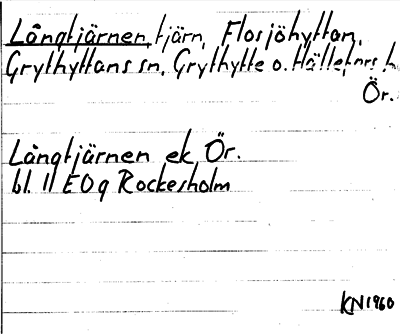 Långtjärnen, tjärn, Flosjöhyttan,
Grythyttans sn, Grythytte o. Hällefors h.
Ör.
Långtjärnen ek Ör.
bl. 11 EO g Rockesholm
KN 1960